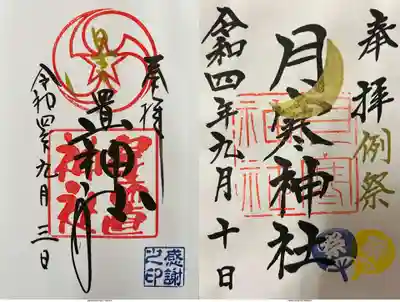 奉拝
星置神社
令和四年九月三日
星置神社
感謝之印
奉拝
例祭
月寒神社
令和四年九月十日